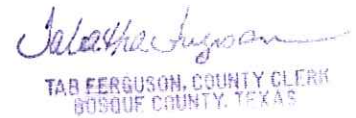 Tabatha Ferguson
TAB FERGUSON, COUNTY CLERK
BOSQUE COUNTY, TEXAS